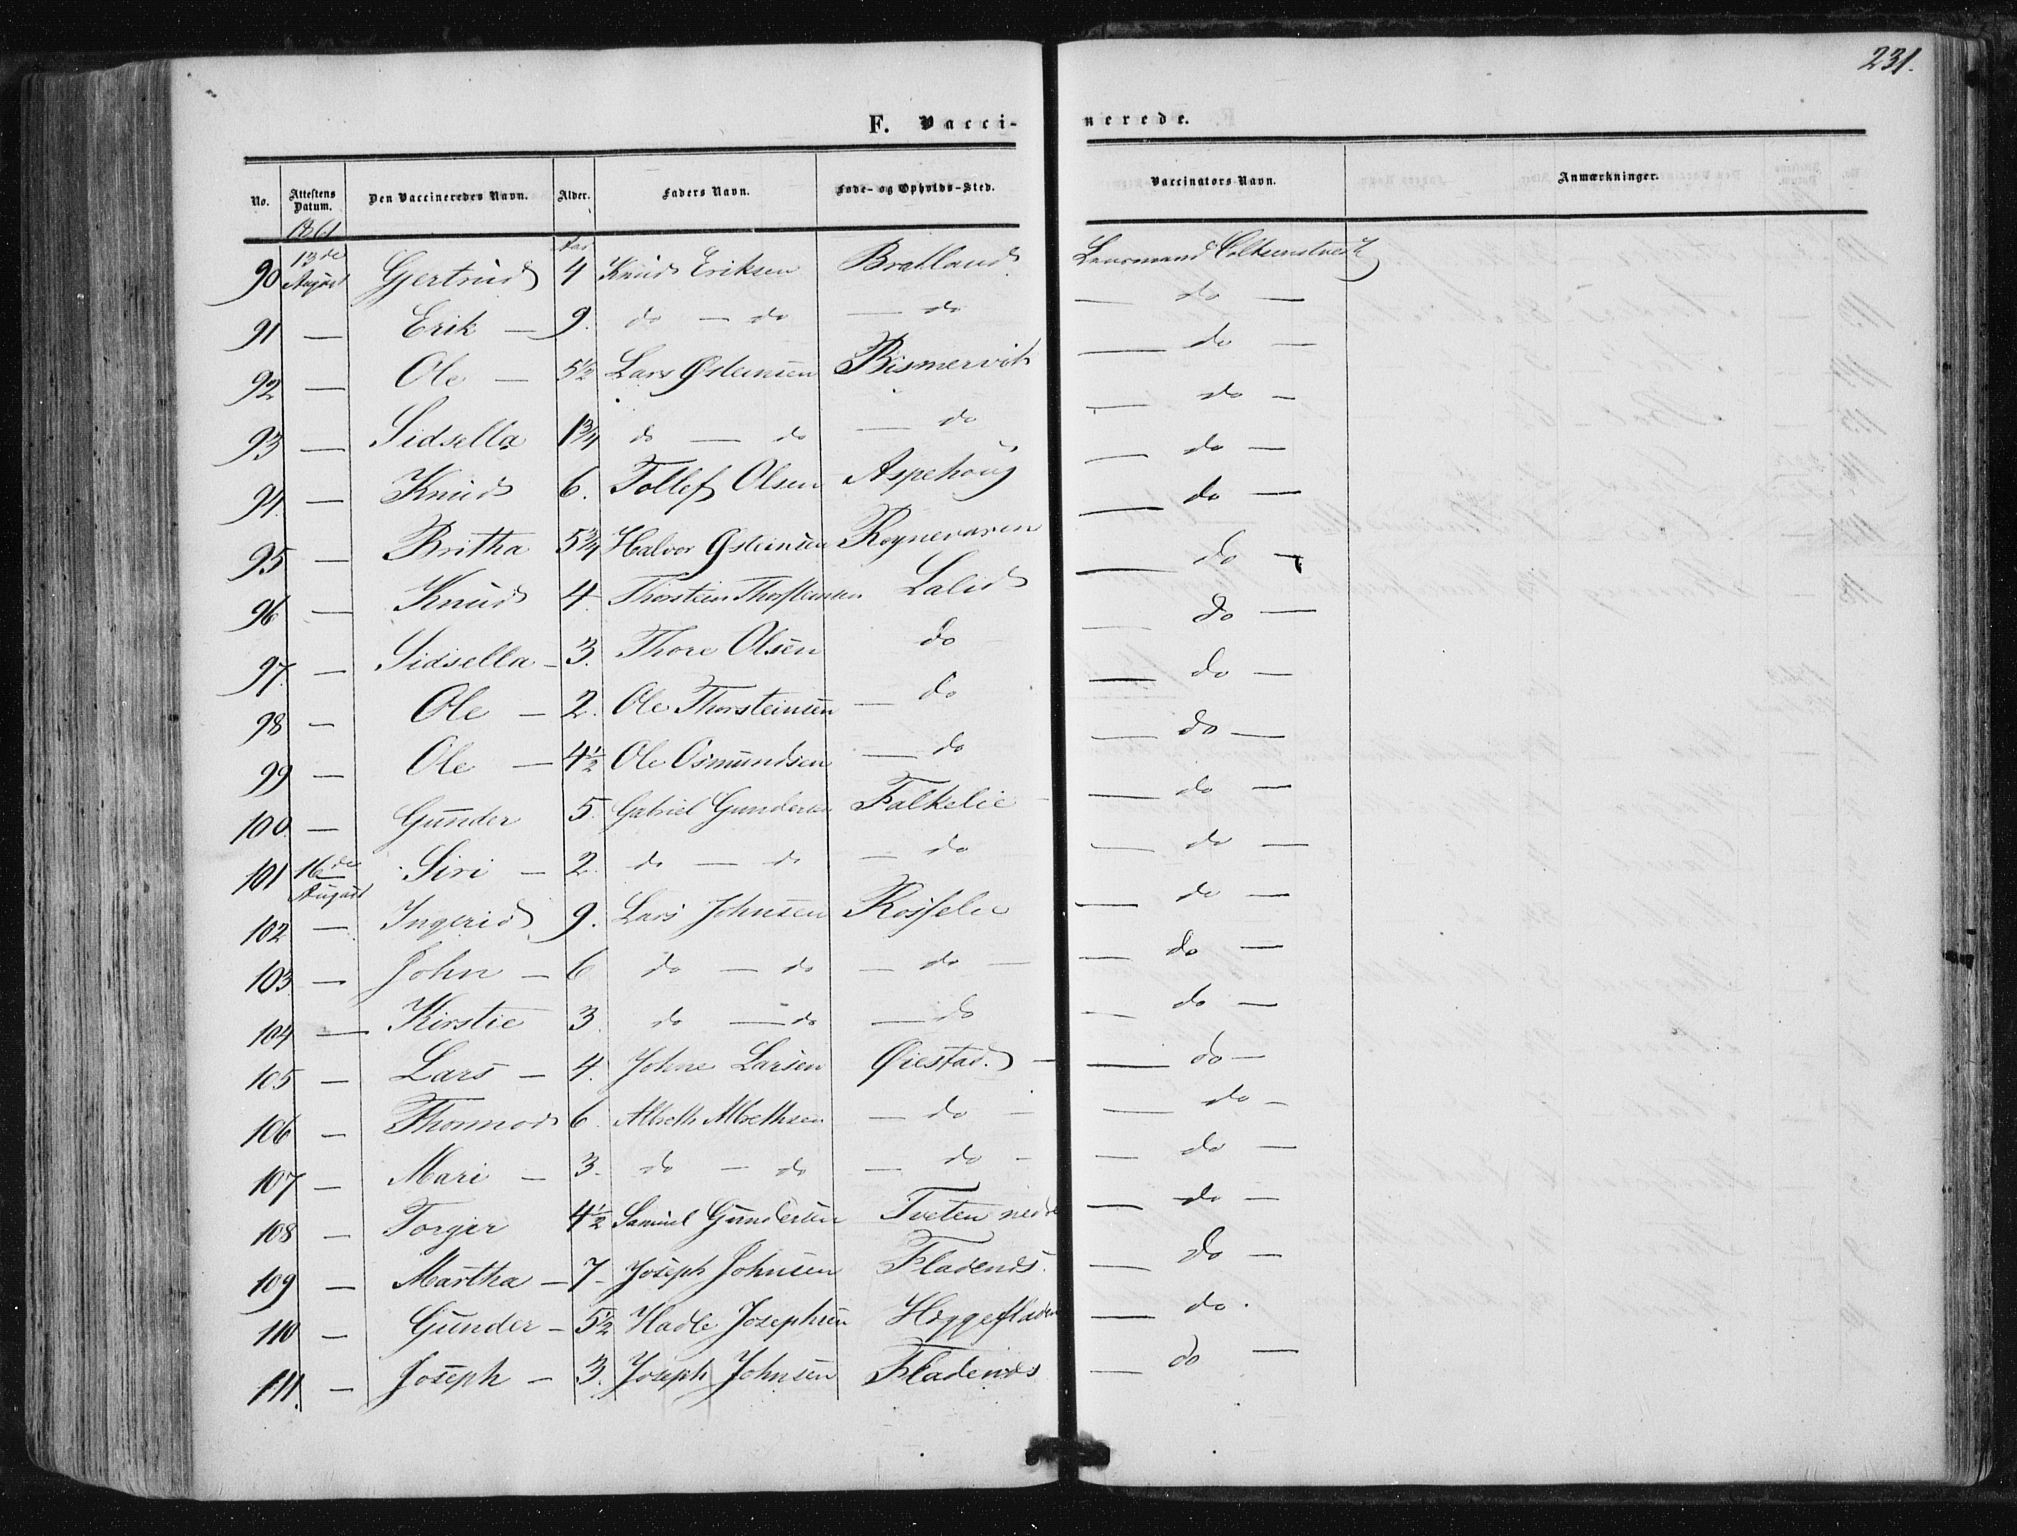 231.
F. Vaccinerede.
No. Attestens Datum. Den Vaccineredes Navn. Alder. Faders Navn. Føde- og Opholds-Sted. Vaccinators Navn. Anmærkninger.
1861 Aar
90 13de August Gjertrud 4 Knud Eriksen Bratland Lensmand
91 — Erik — 9. do — do — do — do —
92 — Ole — 5½ Lars Østeinsen Bismervik — do —
93 — Sidsella 1¾ do — do — do — do —
94. — Knud 6. Tollef Olsen Aspehoug — do —
95 — Britha 5¾ Halvor Østeinsen Roynevaren — do —
96 — Knud 4. Thorstein Thorsteinsen Lalid — do —
97. — Sidsella — 3. Thore Olsen do — do —
98 — Ole — 2. Ole Thorsteinsen — do — do —
99 — Ole — 4½ Ole Osmundsen — do — do —
100. — Gunder 5. Gabriel Gundersen Falkelie — do —
101 16de August Siri — 2. do — do — do — do —
102 — Ingerid 9. Lars Johnsen Rosfelie — do —
103. — John — 6 do — do — do — — do —
104 — Kirstie 3. do — do — do — do —
105 — Lars — 4. Johne Larsen Øiestad. — — do —
106 — Thormod 6. Albreth Albrethsen — do — — do —
107 — Mari — 3. do — do — do — — do —
108 — Torger 4½ Samuel Gundersen Tveten nedre — do —
109 — Martha — 7. Joseph Johnsen Fladenes. — do —
110 — Gunder — 5½ Hadle Josephsen Heggefladen — do.
111. — Joseph — 3. Joseph Johnsen Fladenes — do —